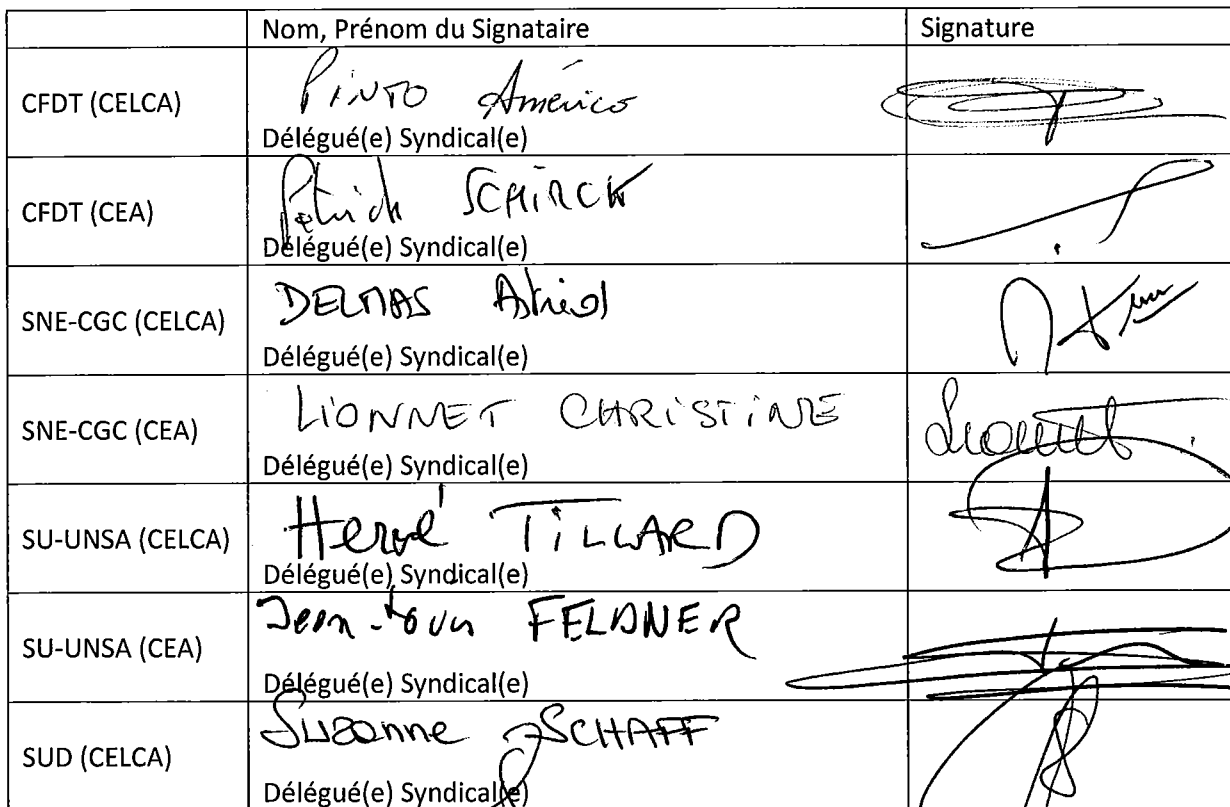 Nom, Prénom du Signataire Signature
CFDT (CELCA) PINTO Américo
Délégué(e) Syndical(e)
CFDT (CEA) Patrick SCHIRCK
Délégué(e) Syndical(e)
SNE-CGC (CELCA) DELMAS Astrid
Délégué(e) Syndical(e)
SNE-CGC (CEA) LIONNET CHRISTINE
Délégué(e) Syndical(e)
SU-UNSA (CELCA) Hervé TILLARD
Délégué(e) Syndical(e)
SU-UNSA (CEA) Jean-Louis FELDNER
Délégué(e) Syndical(e)
SUD (CELCA) Suzanne SCHAFF
Délégué(e) Syndical(e)